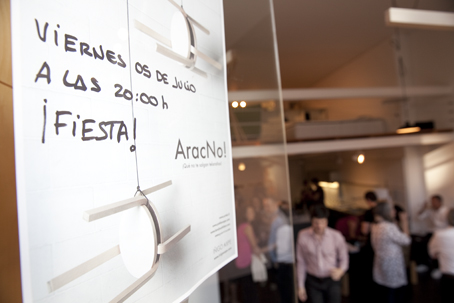 VIERNES 05 DE JULIO
A LAS 20:00 h
¡FIESTA!
AracNo!